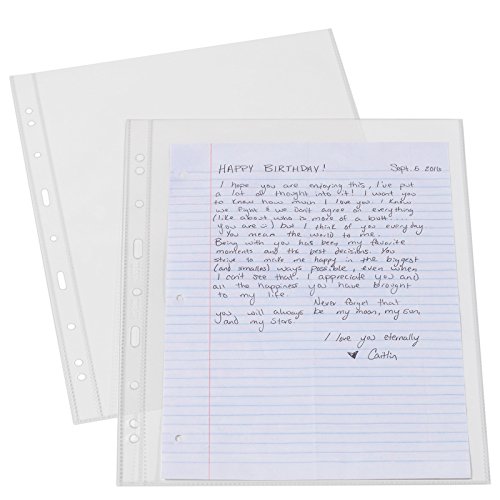 HAPPY BIRTHDAY! Sept. 5 2016
I hope you are enjoying this, I've put
a lot of thought into it! I want you
to know how much I love you. I know
we fight & we don't agree on everything
(like about who is more of a butt...
you are ☺) but I think of you everyday
You mean the world to me.
Being with you has been my favorite
moments and the best decisions. You
strive to make me happy in the biggest
(and smallest) ways possible, even when
I can't see that. I appreciate you and
all the happiness you have brought
to my life Never forget that
you, will always be my moon, my sun,
and my stars.
I love you eternally
♥ Caitlin